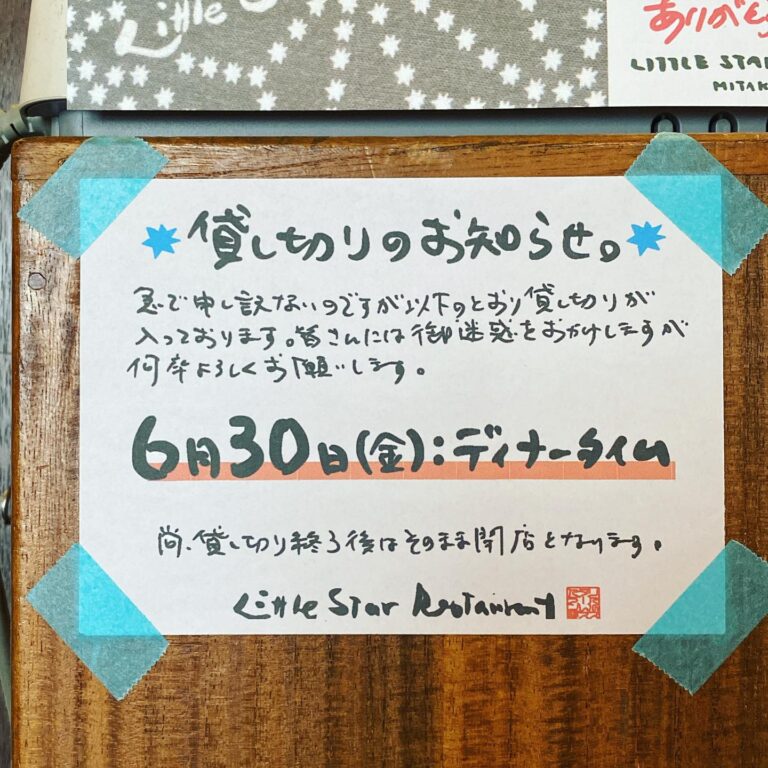 Little
ありがとう
LITTLE STAR
MITAK
貸し切りのお知らせ。
急で申し訳ないのですが以下のとおり貸し切りが
入っております。皆さんには御迷惑をおかけしますが
何卒よろしくお願いします。
6月30日(金):ディナータイム
尚、貸し切り終了後はそのまま閉店となります。
Little Star Restaurant